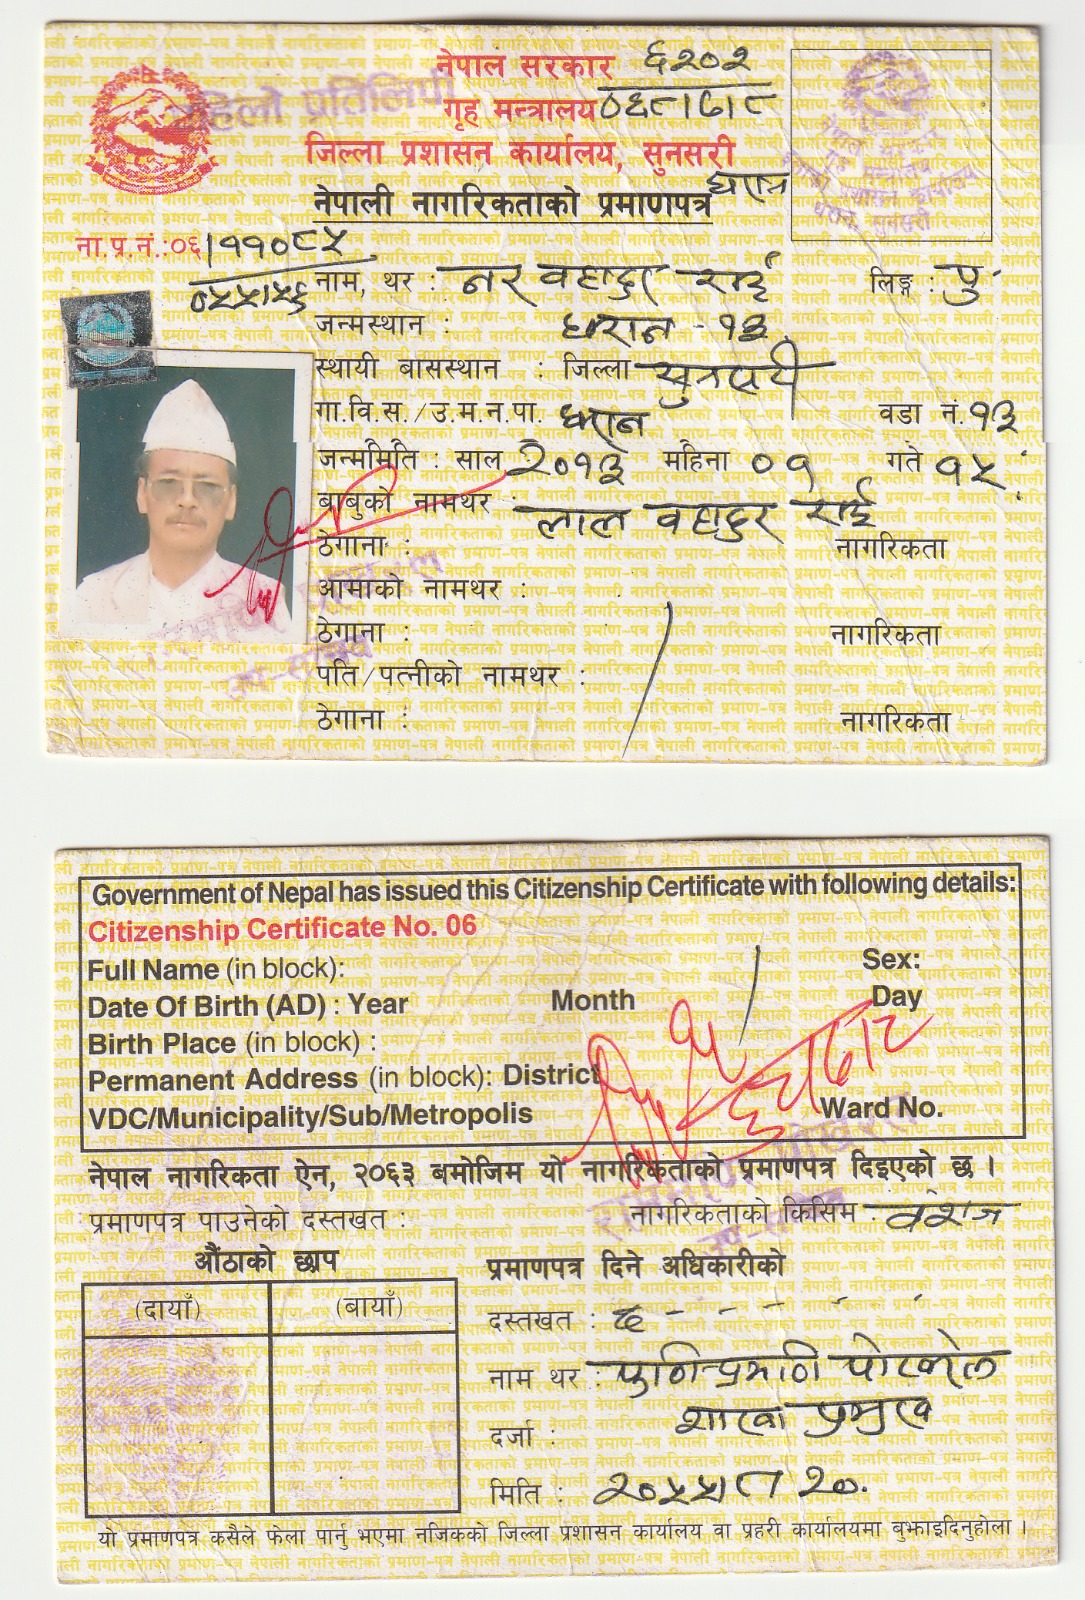 नेपाल सरकार ६२०२
गृह मन्त्रालय ०६८।७।८
जिल्ला प्रशासन कार्यालय, सुनसरी
धरान
नेपाली नागरिकताको प्रमाणपत्र
ना.प्र.नं.:०६।११०८५
०५५।५६
नाम, थर : नर वहादुर राई लिङ्ग : पु.
जन्मस्थान : धरान - १३
स्थायी बासस्थान : जिल्ला सुनसरी
गा.वि.स./उ.म.न.पा. धरान वडा नं. १३
जन्ममिति : साल २०१३ महिना ०१ गते १५
बाबुको नामथर : लाल वहादुर राई
ठेगाना : नागरिकता
आमाको नामथर :
ठेगाना : नागरिकता
पति/पत्नीको नामथर :
ठेगाना : नागरिकता
Government of Nepal has issued this Citizenship Certificate with following details:
Citizenship Certificate No. 06
Full Name (in block): Sex:
Date Of Birth (AD) : Year Month Day
Birth Place (in block) :
Permanent Address (in block): District
VDC/Municipality/Sub/Metropolis Ward No.
नेपाल नागरिकता ऐन, २०६३ बमोजिम यो नागरिकताको प्रमाणपत्र दिइएको छ ।
प्रमाणपत्र पाउनेको दस्तखत : नागरिकताको किसिम : वंशज
औंठाको छाप
(दायाँ) (बायाँ)
प्रमाणपत्र दिने अधिकारीको
दस्तखत : छ
नाम थर : पोखरेल
दर्जा : शाखा प्रमुख
मिति : २०५५।८।२०
यो प्रमाणपत्र कसैले फेला पार्नु भएमा नजिकको जिल्ला प्रशासन कार्यालय वा प्रहरी कार्यालयमा बुझाइदिनुहोला ।